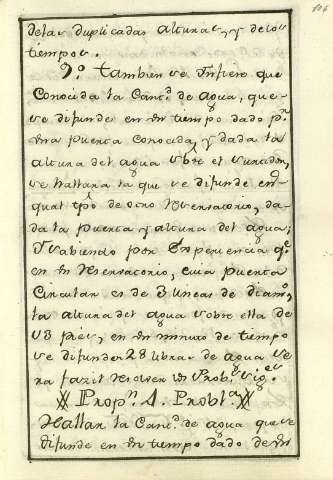 delas duplicadas alturas, y delos
tiempos.
9.º tambien se Infiere que
Conocida la Cant.d de agua, que
se difunde en Vn tiempo dado p.r
Vna puerta conocida, y dada la
altura del agua sobre el
se hallara la que se difunde en
qual tpõ de otro Reservatorio, da-
da la puerta y altura del agua;
Y sabiendo por Experiencia q.e
en Vn Reservatorio, cuia puerta
Circular es de 3 lineas de Diam.o,
la altura del agua sobre ella de
13 pies, en Vn minuto de tiempo
se difunden 28 libras de agua se
ra facil Resolver los Prob.s sig.s
Prop.n 4. Probl.a
Hallar la Cant.d de agua que se
difunde en Vn tiempo dado de Vn